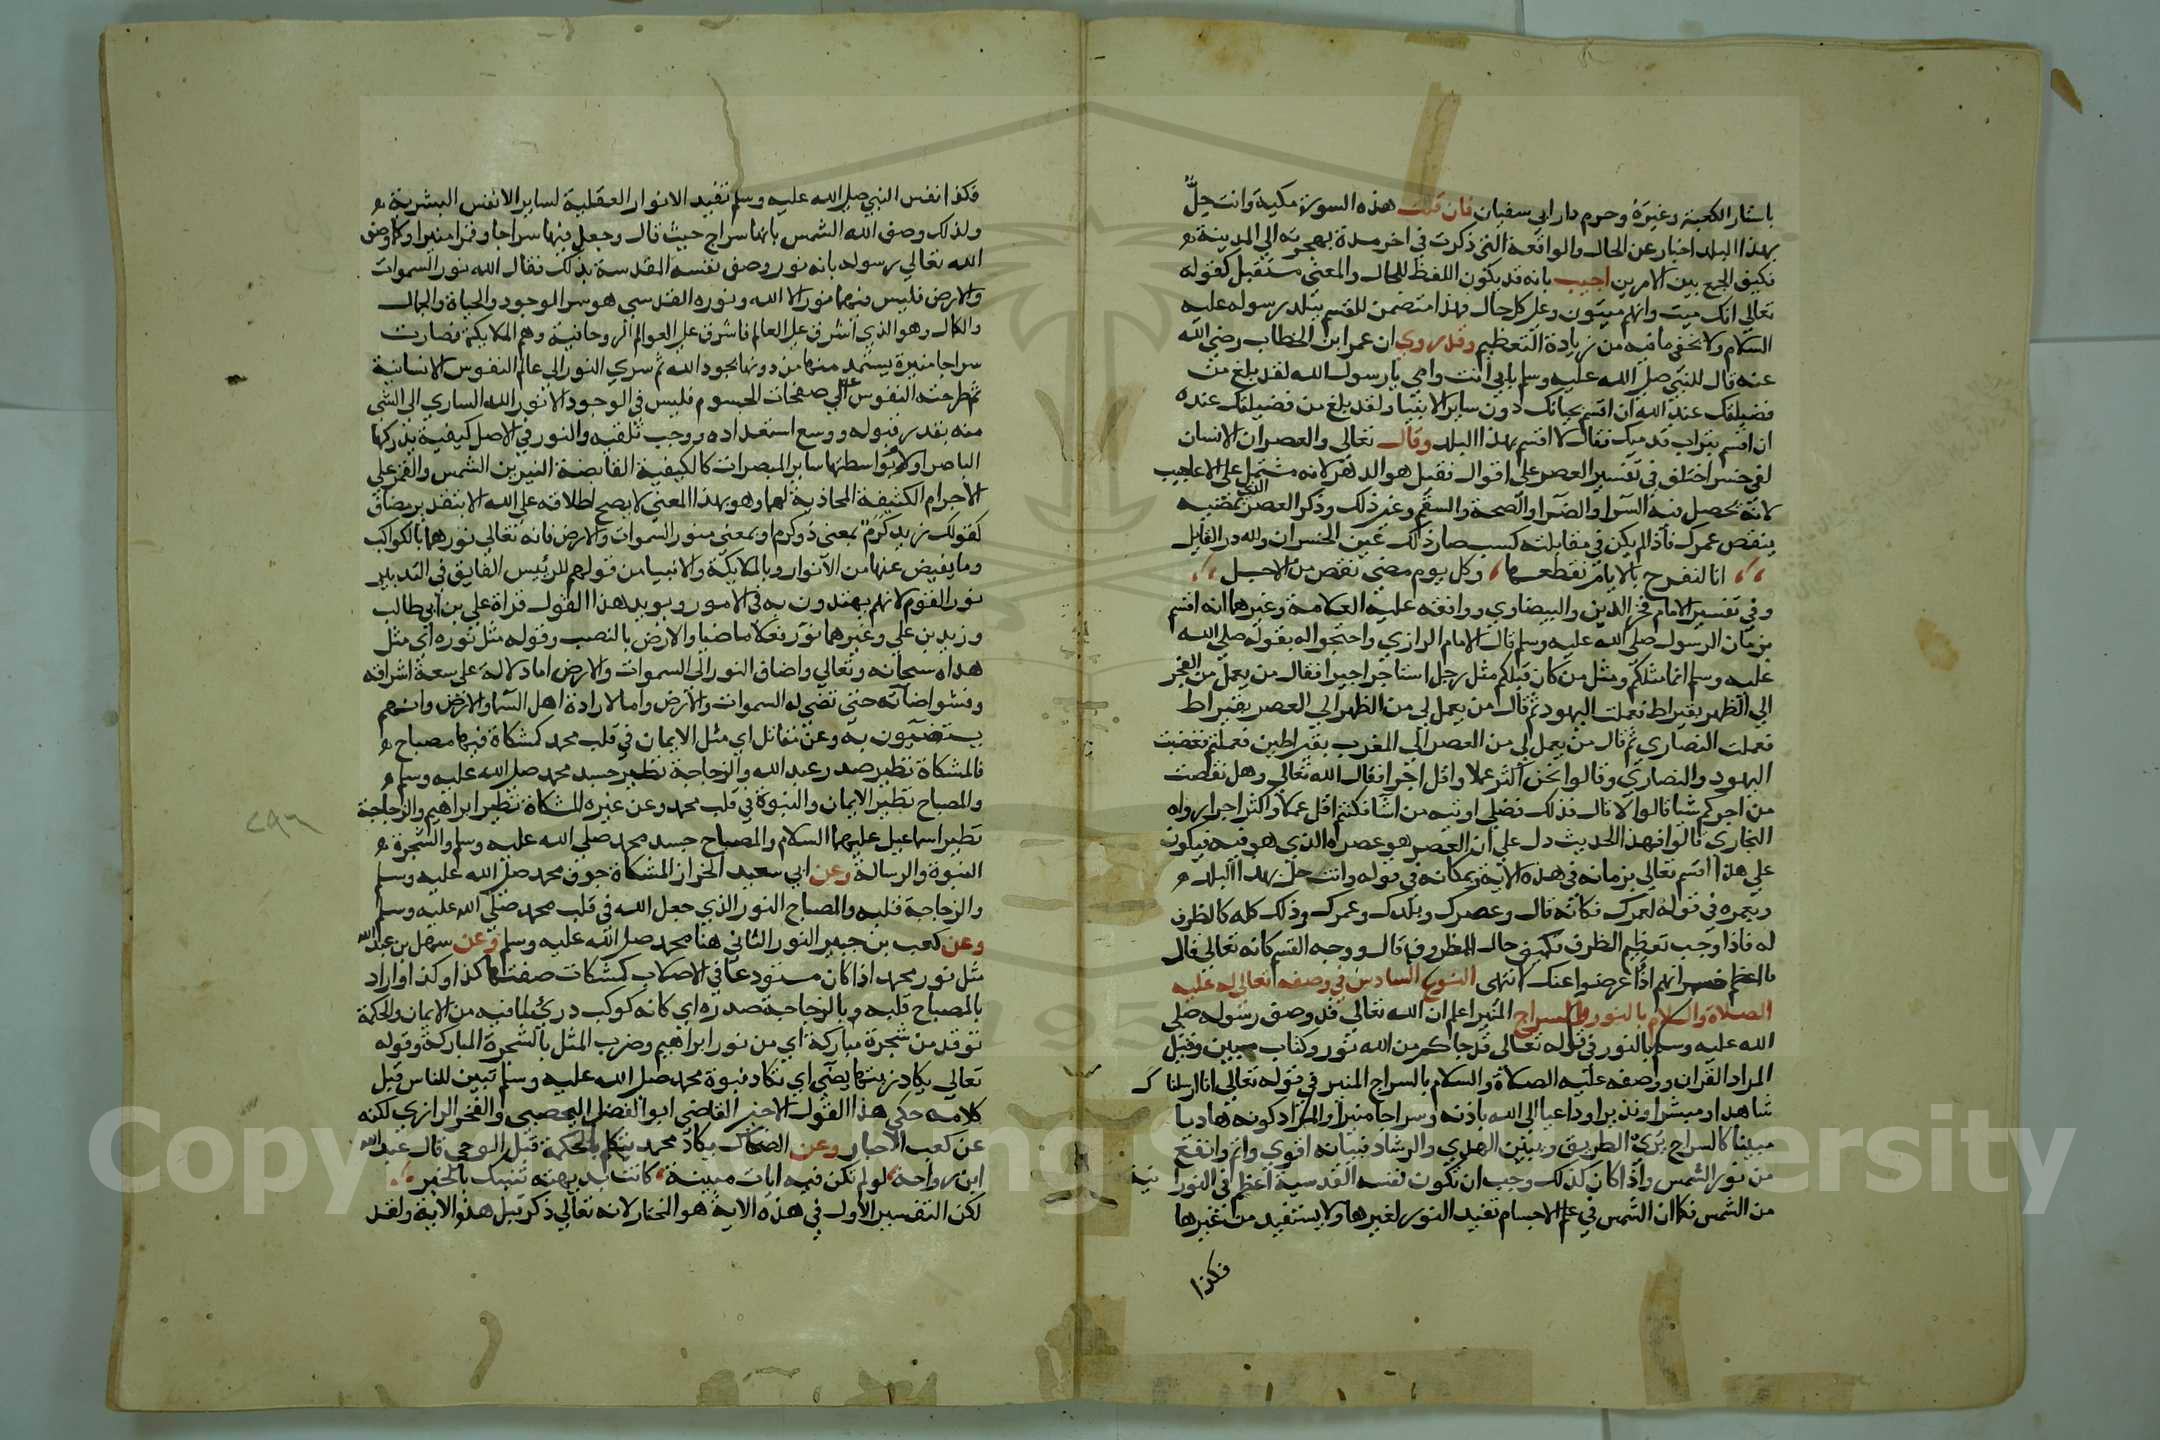 باستار الكعبة وغيره وحرم دار ابي سفيان فان قلت هذه السورة مكية وانت حلّ
بهذا البلد اخبار عن الحال والواقعة التي ذكرت في اخر مدة بهجرته الي المدينة
فكيف الجمع بين الامرين اجيب بانه قد يكون اللفظ للحال والمعني مستقبل كقوله
تعالي انك ميت وانهم ميتون وعلي كل حال فهذا متضمن للقسم ببلد رسوله عليه
السلام ولا يخفي ما فيه من زيادة التعظيم وقد روي ان عمر ابن الخطاب رضي الله
عنه قال للنبي صلي الله عليه وسلم بابي انت وامي يا رسول الله لقد بلغ من
فضيلتك عند الله ان اقسم بحياتك دون ساير الانبيا ولقد بلغ من فضيلتك عنده
ان اقسم بتراب قدميك فقال لا اقسم بهذا البلد وقال تعالي والعصر ان الانسان
لفي خسر اختلف في تفسير العصر علي اقوال فقيل هو الدهر لانه مشتمل علي الاعاجيب
لانه يحصل فيه السرا والضرا والصحة والسقم وغير ذلك وذكر العصر الذي بمضيه
ينقص عمرك فاذا لم يكن في مقابلته كسب صار ذلك عين الخسران ولله در القايل
انا لنفرح بالايام نقطعها وكل يوم مضي نقص من الاجل
وفي تفسير الامام فخر الدين والبيضاوي ووافقه عليه العلامة وغيرهما انه اقسم
بزمان الرسول صلي الله عليه وسلم قال الامام الرازي واحتجوا له بقوله صلي الله
عليه وسلم انما مثلكم ومثل من كان قبلكم مثل رجل استاجر اجيرا فقال من يعمل من الفجر
الي الظهر بقيراط فعملت اليهود ثم قال من يعمل لي من الظهر الي العصر بقيراط
فعملت النصاري ثم قال من يعمل لي من العصر الي المغرب بقيراطين فعملتم فغضبت
اليهود والنصاري وقالوا نحن اكثر عملا واقل اجرا فقال الله تعالي وهل نقصت
من اجركم شيا قالوا لا قال فذلك فضلي اوتيه من اشا فكنتم اقل عملا واكثر اجرا رواه
البخاري قالوا فهذا الحديث دل علي ان العصر هو عصره الذي هو فيه فيكون
علي هذا اقسم تعالي بزمانه في هذه الاية وبمكانه في قوله وانت حل بهذا البلد
وبعمره في قوله لعمرك فكانه قال وعصرك وبلدك وعمرك وذلك كله كالظرف
له فاذا وجب تعظيم الظرف فكيف حال المظروف قال ووجه القسم كانه تعالي قال
ما اعظم خسرانهم اذا عرضوا عنك انتهي النوع السادس في وصفه تعالي له عليه
الصلاة والسلام بالنور والسراج المنير اعلم ان الله تعالي قد وصف رسوله صلي
الله عليه وسلم بالنور في قوله تعالي قد جاكم من الله نور وكتاب مبين وقيل
المراد القران ووصفه عليه الصلاة والسلام بالسراج المنير في قوله تعالي انا ارسلناك
شاهدا ومبشرا ونذيرا وداعيا الي الله باذنه وسراجا منيرا والمراد كونه هاديا
مبينا كالسراج يري الطريق ويبين الهدي والرشاد فبيانه اقوي واتم وانفع
من نور الشمس واذا كان كذلك وجب ان تكون نفسه القدسية اعظم في النورانية
من الشمس فكما ان الشمس في عالم الاجسام تفيد النور لغيرها ولا يستفيد من غيرها
فكذا
فكذا نفس النبي صلي الله عليه وسلم تفيد الانوار العقلية لساير الانفس البشرية
ولذلك وصف الله الشمس بانها سراج حيث قال وجعل فيها سراجا وقمرا منيرا وكما وصف
الله تعالي رسوله بانه نور وصف نفسه المقدسة بذلك فقال الله نور السموات
والارض فليس فيهما نور الا الله ونوره القدسي هو سر الوجود والحياة والجمال
والكمال وهو الذي اشرق علي العالم فاشرق علي العوالم الروحانية وهم الملايكة فصارت
سراجا منيرة يستمد منها من دونها بجود الله ثم سري النور الي عالم النفوس الانسانية
ثم طرحته النفوس علي صفحات الجسوم فليس في الوجود الا نور الله الساري الي الشي
منه بقدر قبوله ووسع استعداده ورحب تلقيه والنور في الاصل كيفية يدركها
الباصر اولا وبواسطتها ساير المبصرات كالكيفية الفايضة النيرين الشمس والقمر علي
الاجرام الكثيفة المحاذية لهما وهو بهذا المعني لا يصح اطلاقه علي الله الا بتقدير مضاف
كقولك زيد كرم بمعني ذو كرم او بمعني منور السموات والارض فانه تعالي نورهما بالكواكب
وما يفيض عنها من الانوار وبالملايكة والانبيا من قولهم للرئيس الفايق في التدبير
نور القوم لانهم يهتدون به في الامور ويويد هذا القول قراة علي بن ابي طالب
وزيد بن علي وغيرهما نور فعلا ماضيا والارض بالنصب وقوله مثل نوره اي مثل
هداه سبحانه وتعالي واضاف النور الي السموات والارض اما دلالة علي سعة اشراقه
وفشو اضاته حتي تضي له السموات والارض واما لارادة اهل السما والارض وانهم
يستضيون به وعن مقاتل اي مثل الايمان في قلب محمد كمشكاة فيها مصباح
فالمشكاة نظير صدر عبد الله والزجاجة نظير جسد محمد صلي الله عليه وسلم
والمصباح نظير الايمان والنبوة في قلب محمد وعن غيره المشكاة نظير ابراهيم والزجاجة
نظير اسماعيل عليهما السلام والمصباح جسد محمد صلي الله عليه وسلم والشجرة
النبوة والرسالة وعن ابي سعيد الخراز المشكاة جوف محمد صلي الله عليه وسلم
والزجاجة قلبه والمصباح النور الذي جعل الله في قلب محمد صلي الله عليه وسلم
وعن كعب بن جبير النور الثاني هنا محمد صلي الله عليه وسلم وعن سهل بن عبد الله
مثل نور محمد اذا كان مستودعا في الاصلاب كمشكات صفتها كذا وكذا واراد
بالمصباح قلبه وبالزجاجة صدره اي كانه كوكب دري لما فيه من الايمان والحكمة
توقد من شجرة مباركة اي من نور ابراهيم وضرب المثل بالشجرة المباركة وقوله
تعالي يكاد زيتها يضي اي تكاد نبوة محمد صلي الله عليه وسلم تبين للناس قبل
كلامه حكي هذا القول الاخير القاضي ابو الفضل اليحصبي والفخر الرازي لكنه
عن كعب الاحبار وعن الضحاك يكاد محمد يتكلم بالحكمة قبل الوحي قال عبد الله
ابن رواحة لو لم تكن فيه ايات مبينة كانت بديهته تنبيك بالخبر
لكن التفسير الاول في هذه الاية هو المختار لانه تعالي ذكر قبل هذه الاية ولقد
٢٩٦
Copyright © King Saud University